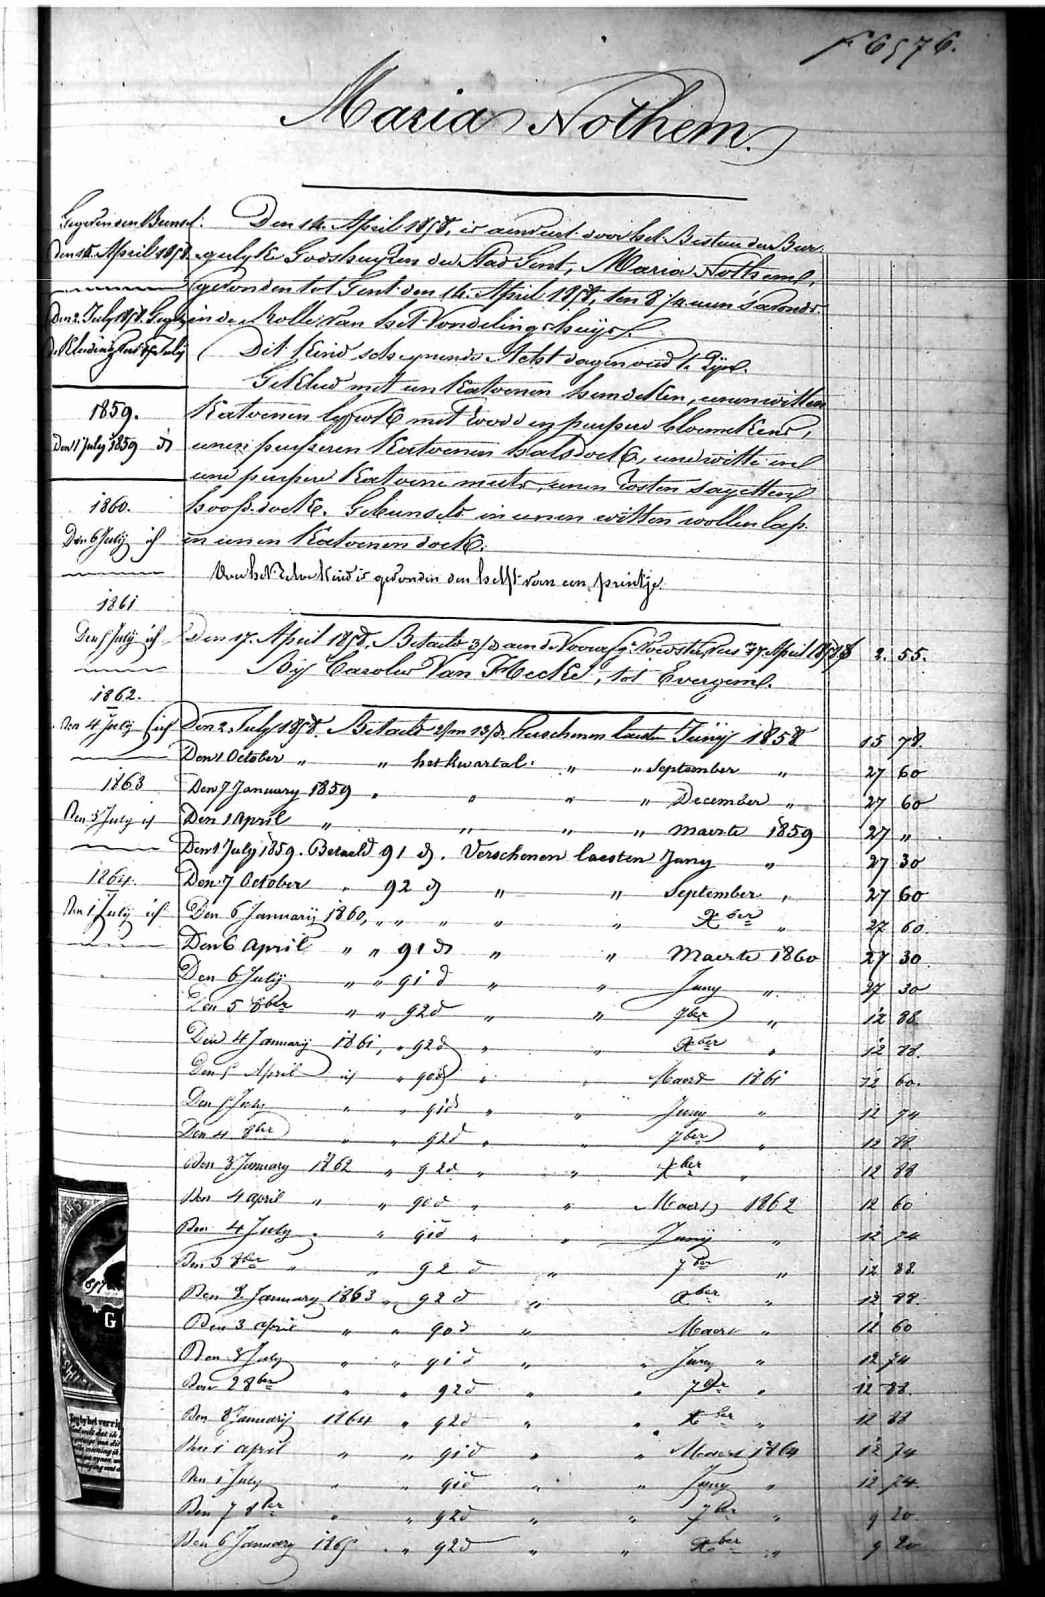 f 6576.
Maria Nothem.
Den 14 April 1858, is aenveert door het Bestuer der Bur-
gerlyke Godshuyzen der Stad Gent, Maria Nothem,
gevonden tot Gent den 14 April 1858, ten 8 1/4 uren 's avonds
in de Rolle van het Vondelingshuys.
Dit kind schynende Acht dagen oud te zyn.
Gekleed met een katoenen hemdeken, eenen witten
katoenen lyfrok met roode en purpere bloemekens,
eenen purperen katoenen halsdoek, eene witte en
eene purpere katoene muts, eenen rosten sayetten
hoofdoek. Gebunseld in eenen witten wollen lap
en eenen katoenen doek.
Voor het zelve kind is gevonden den helft van een printje.
Den 17 April 1858, Betaeld aen de Voorafg. Voedster, 17 April 1858 2. 55.
Bij Carolus Van Hecke, tot Evergem.
Den 2 July 1858. Betaeld 2/m 13/d. Verschenen laesten Junij 1858 15 78
Den 1 October " " het kwartal. " " September " 27 60
Den 7 January 1859 " " " " December " 27 60
Den 1 April " " " " Maerte 1859 27 "
Den 1 July 1859. Betaeld 91 d. Verschenen laesten Juny " 27 30
Den 7 October " 92 d " " September " 27 60
Den 6 Januarij 1860, " " " " " Xber " 27 60
Den 6 April " " 91 d " " Maerte 1860 27 30
Den 6 Julij " " 91 d " " Juny " 27 30
Den 5 8ber " " 92 d " " 7ber " 12 88
Den 4 Januarij 1861, " 92 d " " Xber " 12 88
Den 5 April " 90 d " " Maert 1861 12 60
Den 5 July " " 91 d " " Juny " 12 74
Den 4 8ber " " 92 d " " 7ber " 12 88
Den 3 January 1862 " 92 d " " Xber " 12 88
Den 4 April " " 90 d " " Maert 1862 12 60
Den 4 July " " 91 d " " Junij " 12 74
Den 3 8ber " " 92 d " 7ber " 12 88
Den 8 January 1863 " 92 d " Xber " 12 88
Den 3 April " " 90 d " Maert " 12 60
Den 3 July " " 91 d " " Juny " 12 74
Den 2 8ber " " 92 d " " 7ber " 12 88
Den 8 Januarij 1864 " 92 d " " Xber " 12 88
Den 1 April " " 91 d " " Maert 1864 12 74
Den 1 July " " 91 d " " Juny " 12 74
Den 7 8ber " " 92 d " " 7ber " 9 20
Den 6 January 1865 " " 92 d " " Xber " 9 20
Gegeven een Bunsel
den 14 April 1858
Den 2 July 1858 Gegev
de Kleeding July
1859.
Den 1 July 1859 d
1860.
Den 6 Julij id
1861
Den 5 Julij id
1862.
Den 4 July id
1863
Den 3 July id
1864.
Den 1 Julij id
G